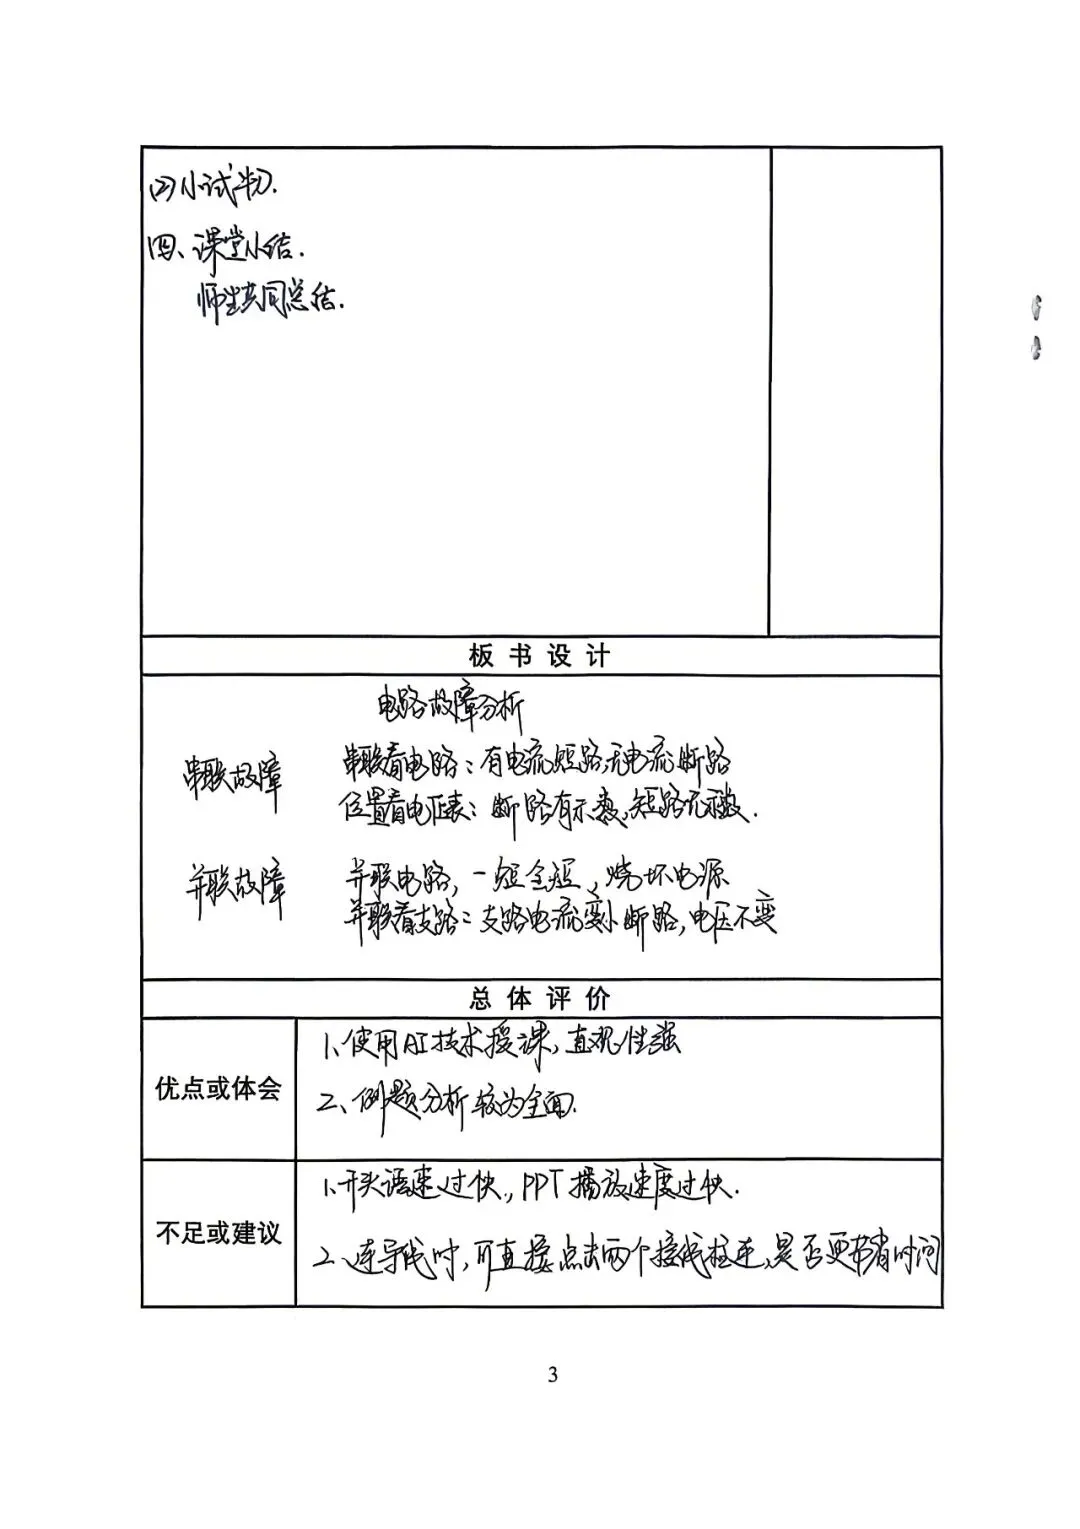 (2)小试牛刀.
四、课堂小结.
师生共同总结.
板书设计
电路故障分析
串联故障
串联看电路：有电流短路,无电流断路
位置看电压表：断路有示数,短路无示数.
并联故障
并联电路,一短全短,烧坏电源
并联看支路：支路电流变小断路,电压不变
总体评价
优点或体会
1、使用AI技术授课,直观性强
2、例题分析较为全面.
不足或建议
1、开头语速过快,PPT播放速度过快.
2、连导线时,可直接点击两个接线柱连,是否更节省时间
3